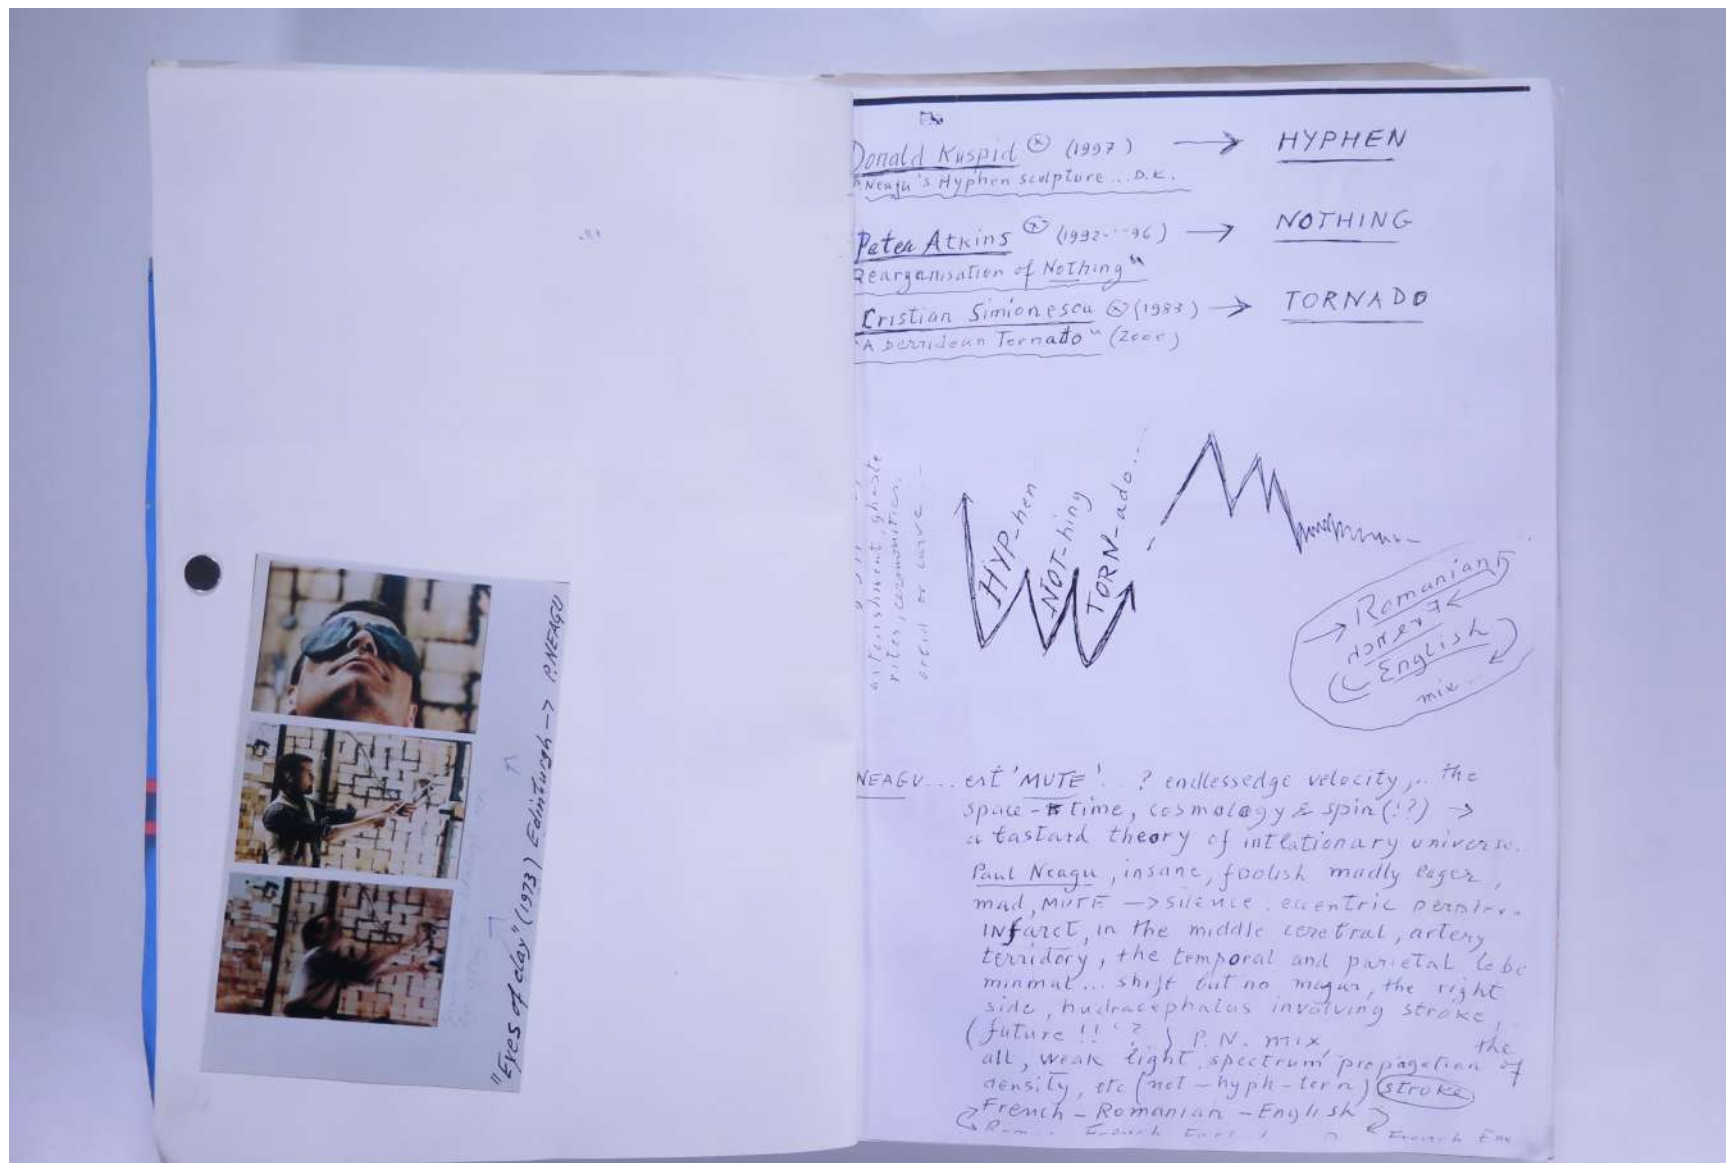 "Eyes of clay" (1973) Edinburgh -> P.NEAGU
Donald Kuspid (x) (1997) → HYPHEN
Neagu's Hyphen sculpture... D.K.
Peter Atkins (x) (1992-..96) → NOTHING
Reorganisation of Nothing"
Cristian Simionescu (x) (1983) → TORNADO
"A Derridean Tornado" (2000)
astonishment, ghaste
rites, ceremonities,
HYP-hen
NOT-hing
TORN-ado...
→ Romanian
English
mix..
NEAGU... est 'MUTE'..? endlessedge velocity,.. the
space-time, cosmology & spin (!?) →
a bastard theory of inflationary universe.
Paul Neagu, insane, foolish madly eager,
mad, MUTE -> silence. eccentric
INfarct, in the middle cerebral, artery
territory, the temporal and parietal lobe
minmal... shift but no magur, the right
side, hudracephalus involving stroke,
(future !! '? ) P.N. mix the
all, weak light, spectrum propagation of
density, etc (not-hyph-torn) stroke
French - Romanian - English